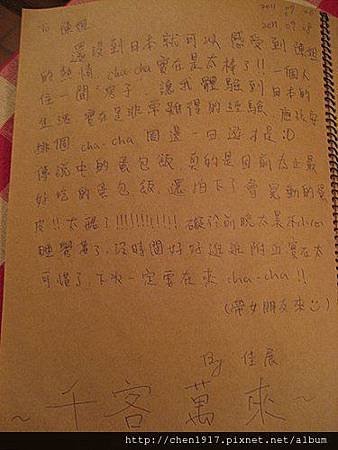 To 陳姐
2011.07.
2011.07.08
還沒到日本就可以感受到陳姐
的熱情 cha cha 實在是太棒了!! 一個人
住一間"房子" 讓我體驗到日本的
生活 實在是非常難得的經驗. 應該安
排個 cha-cha 周邊一日遊才是 :D
傳說中的蛋包飯 真的是目前為止最
好吃的蛋包飯. 還拍下了會晃動的蛋
皮!! 太酷了!!!!!!!!!!! 礙於前晚太晚
睡覺著了, 沒時間好好逛逛附近實在太
可惜了, 下次一定要在來 cha-cha !!
(帶女朋友來☺)
By 佳展
~ 千客萬來 ~
http://chen1917.pixnet.net/album